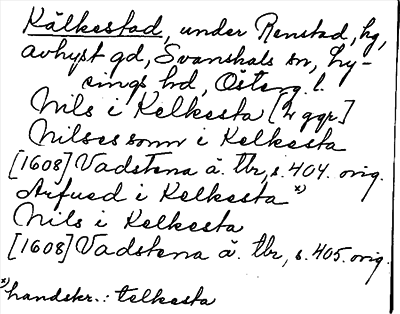 Kälkestad, under Renstad, hg,
avhyst gd, Svanshals sn, Ly-
sings hd, Österg. l.
Nils i Kelkesta [2 ggr.]
Nilses sonn i Kelkesta
[1608] Vadstena ä. tbr, s. 404. orig.
Arfued i Kelkesta x)
Nils i Kelkesta
[1608] Vadstena ä. tbr, s. 405. orig.
x) handskr.: telkesta